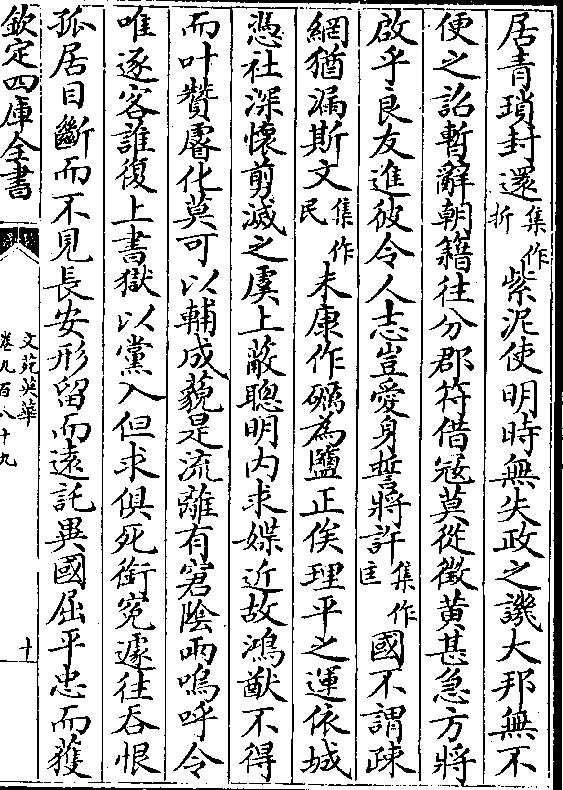 居青瑣封還集作折紫泥使明時無失政之譏大邦無不
便之詔暫辭朝籍往分郡符借寇莫從徵黄甚急方將
啟乎良友進彼令人志豈愛身誓將許集作匡國不謂疎
網猶漏斯文集作民未康作礪為鹽正俟理平之運依城
憑社深懷剪滅之虞上蔽聰明内求媒近故鴻猷不得
而叶贊睿化莫可以輔成藐是流離有窘陰雨嗚呼令
唯逐客誰復上書獄以黨入但求俱死銜寃遽往吞恨
孤居目斷而不見長安形留而遠託異國屈平忠而獲
欽定四庫全書
文苑英華
卷九百八十九
十